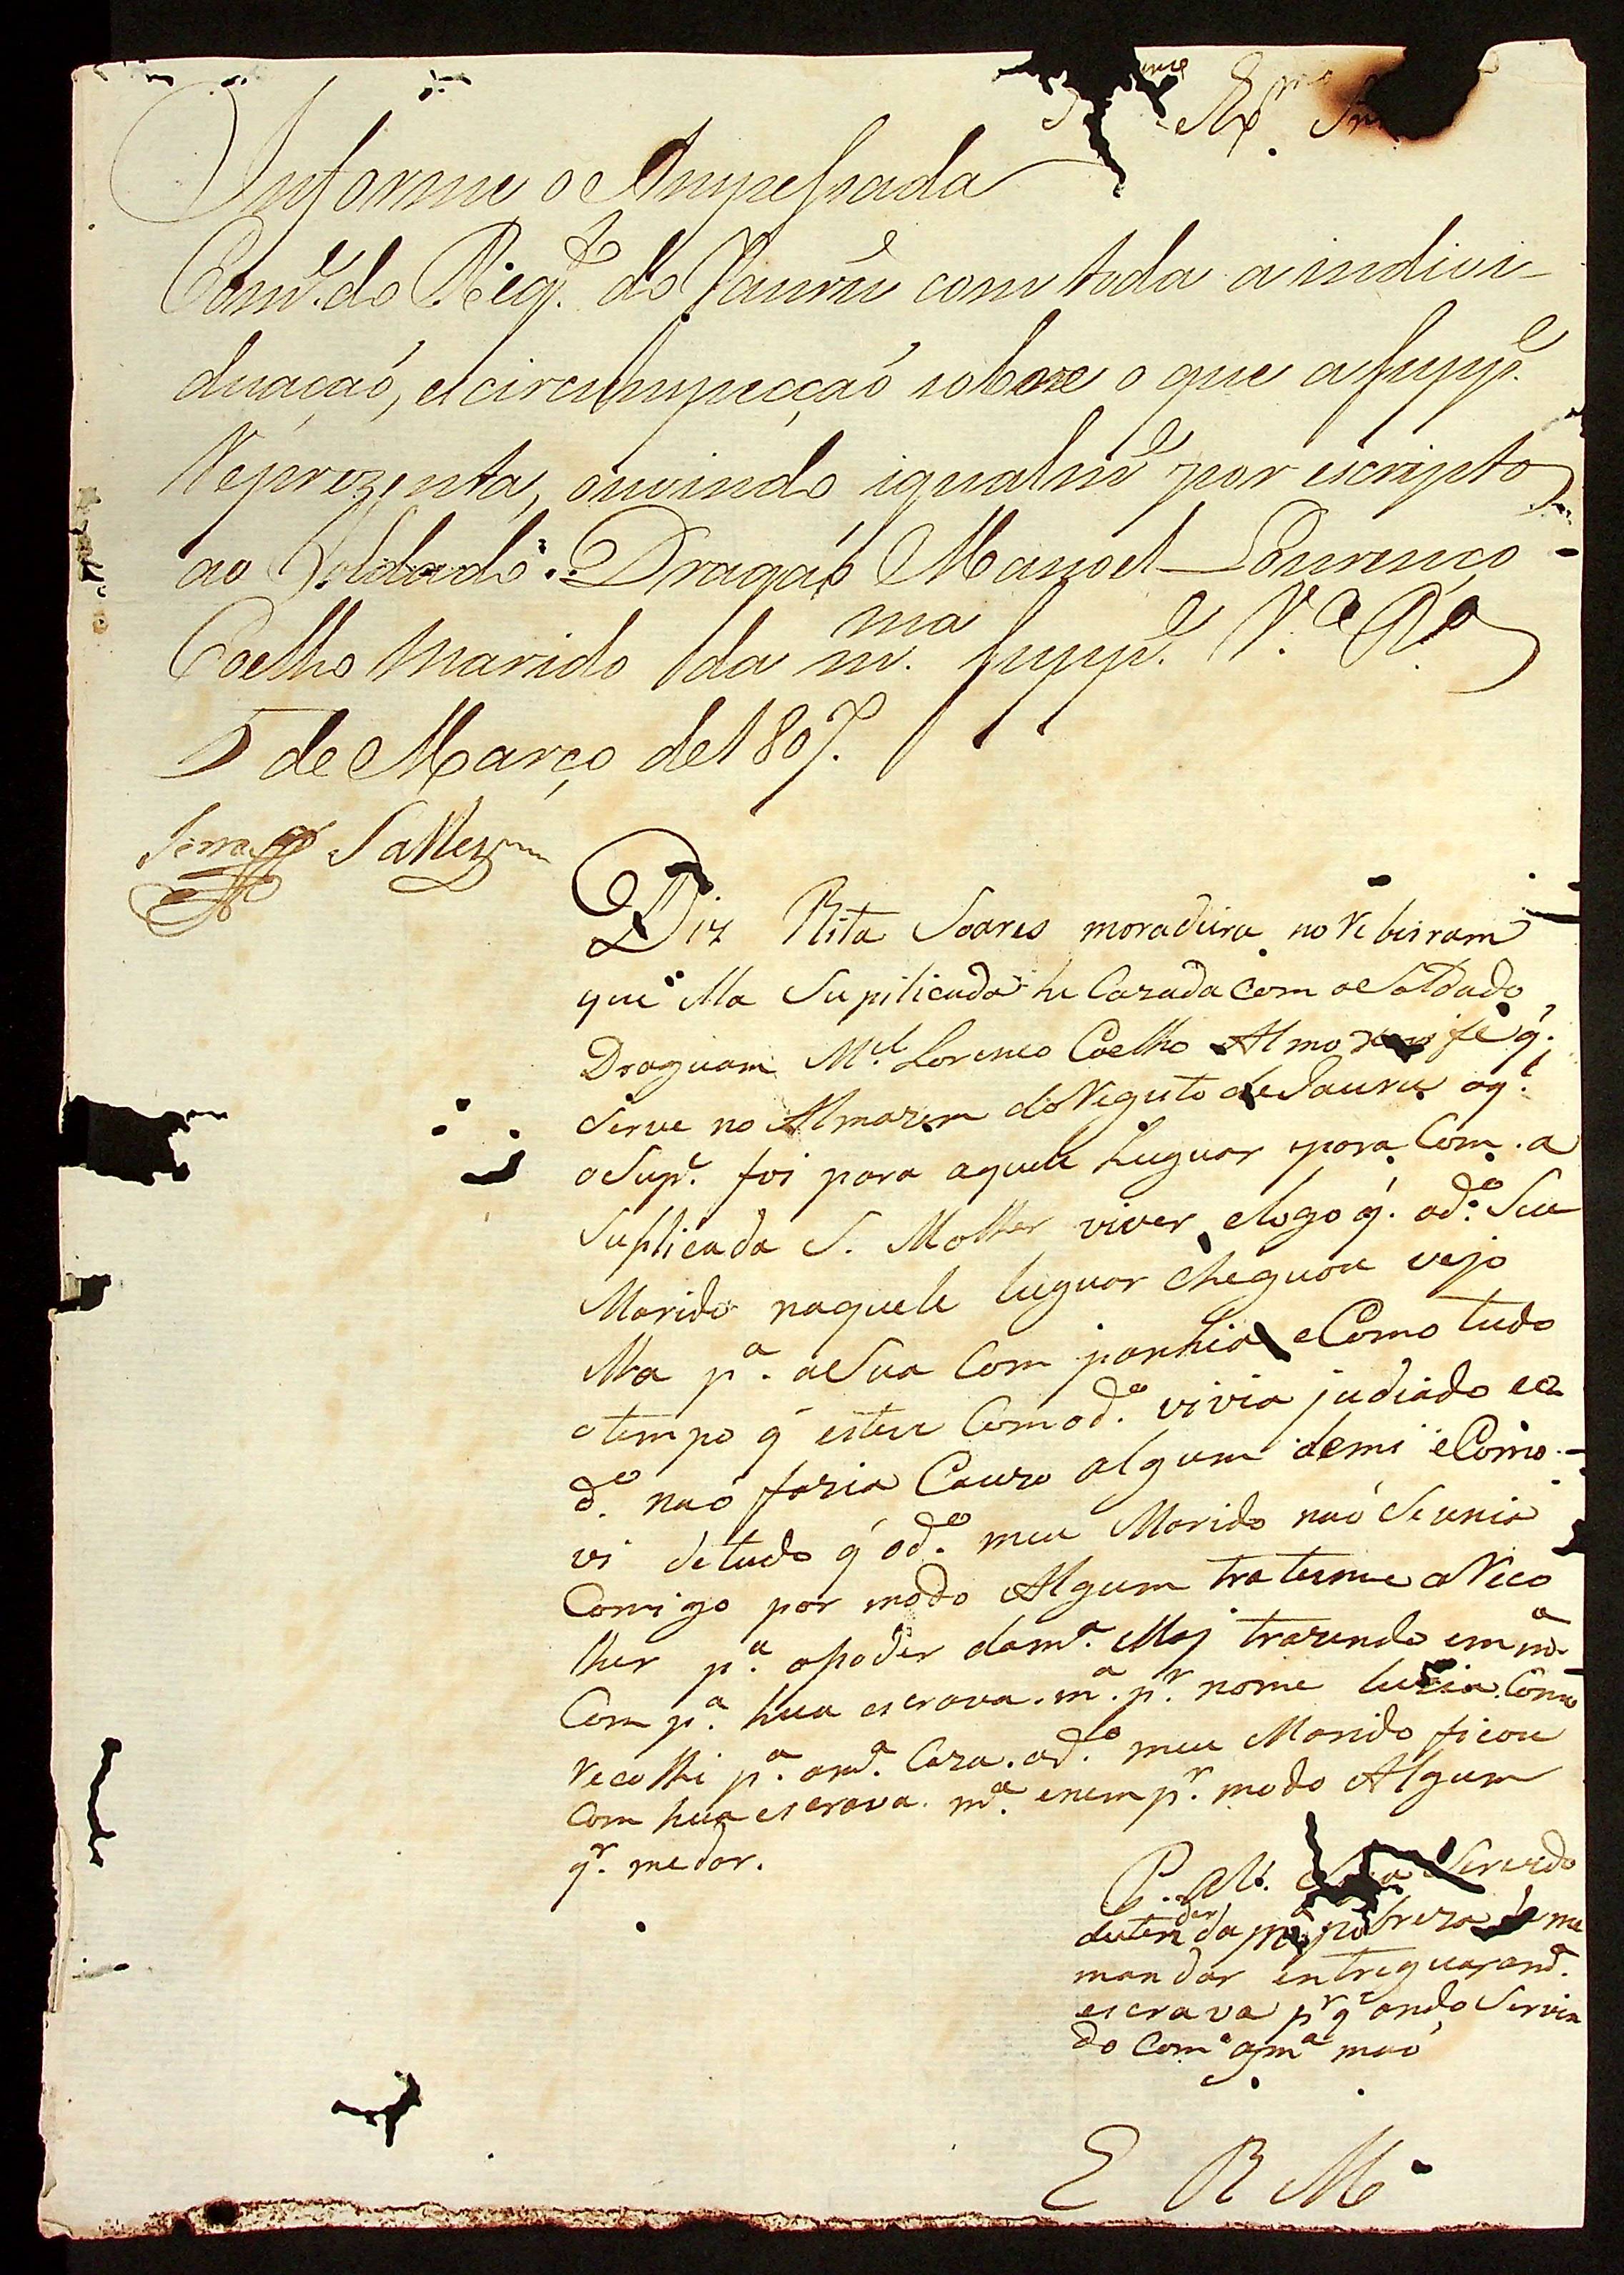 Ex.mo Sn
Informe o Anspessada
Com.e do Reg.to do Jaurú com toda a indivi-
duaçaó, e circunspecçaó sobre o que a Supp.e
Reprezenta, ouvindo igualm.e por escripto
ao Soldado Dragaó Manoel Lourenço
Coelho marido da m.ma Supp.e V.a R.a
5 de Março de 1807.
Diz Rita Soares moradeira no Rebirram
que Ella Supilicada he Cazada com o Soldado
Draguam M.el Lorenco Coelho Almoxarife q.
Serve no Almazem do Reguto de Jauru oq.l
o Sup.e foi para aquele Luguar para Com a
Suplicada S. Molher viver, e logo q. o d.o Seu
Marido naquele luguar cheguou vejo
Ella p.a a Sua Companhia e Como tudo
o tempo q esteve Com o d.o vivia judiado e o
d.o naó fazia Cauzo algum demi e Como
vi detudo q o d.o meu Marido naó Se unia
Comigo por modo Algum trateime a Reco
lher p.a o poder da m.a Maj trazendo em m.a
Comp.a hua escrava m.a p.r nome Luzia Como
Recolhi p.a a m.a Caza o d.o meu Marido ficou
Com hua escrava m.a e nem p.r modo Algum
q.r me dar.
P. a V. Seja Servido
da m.a pobreza me
mandar entreguar a m.a
escrava p.r q.e ando Servin
do Com a m.a maó
E R M